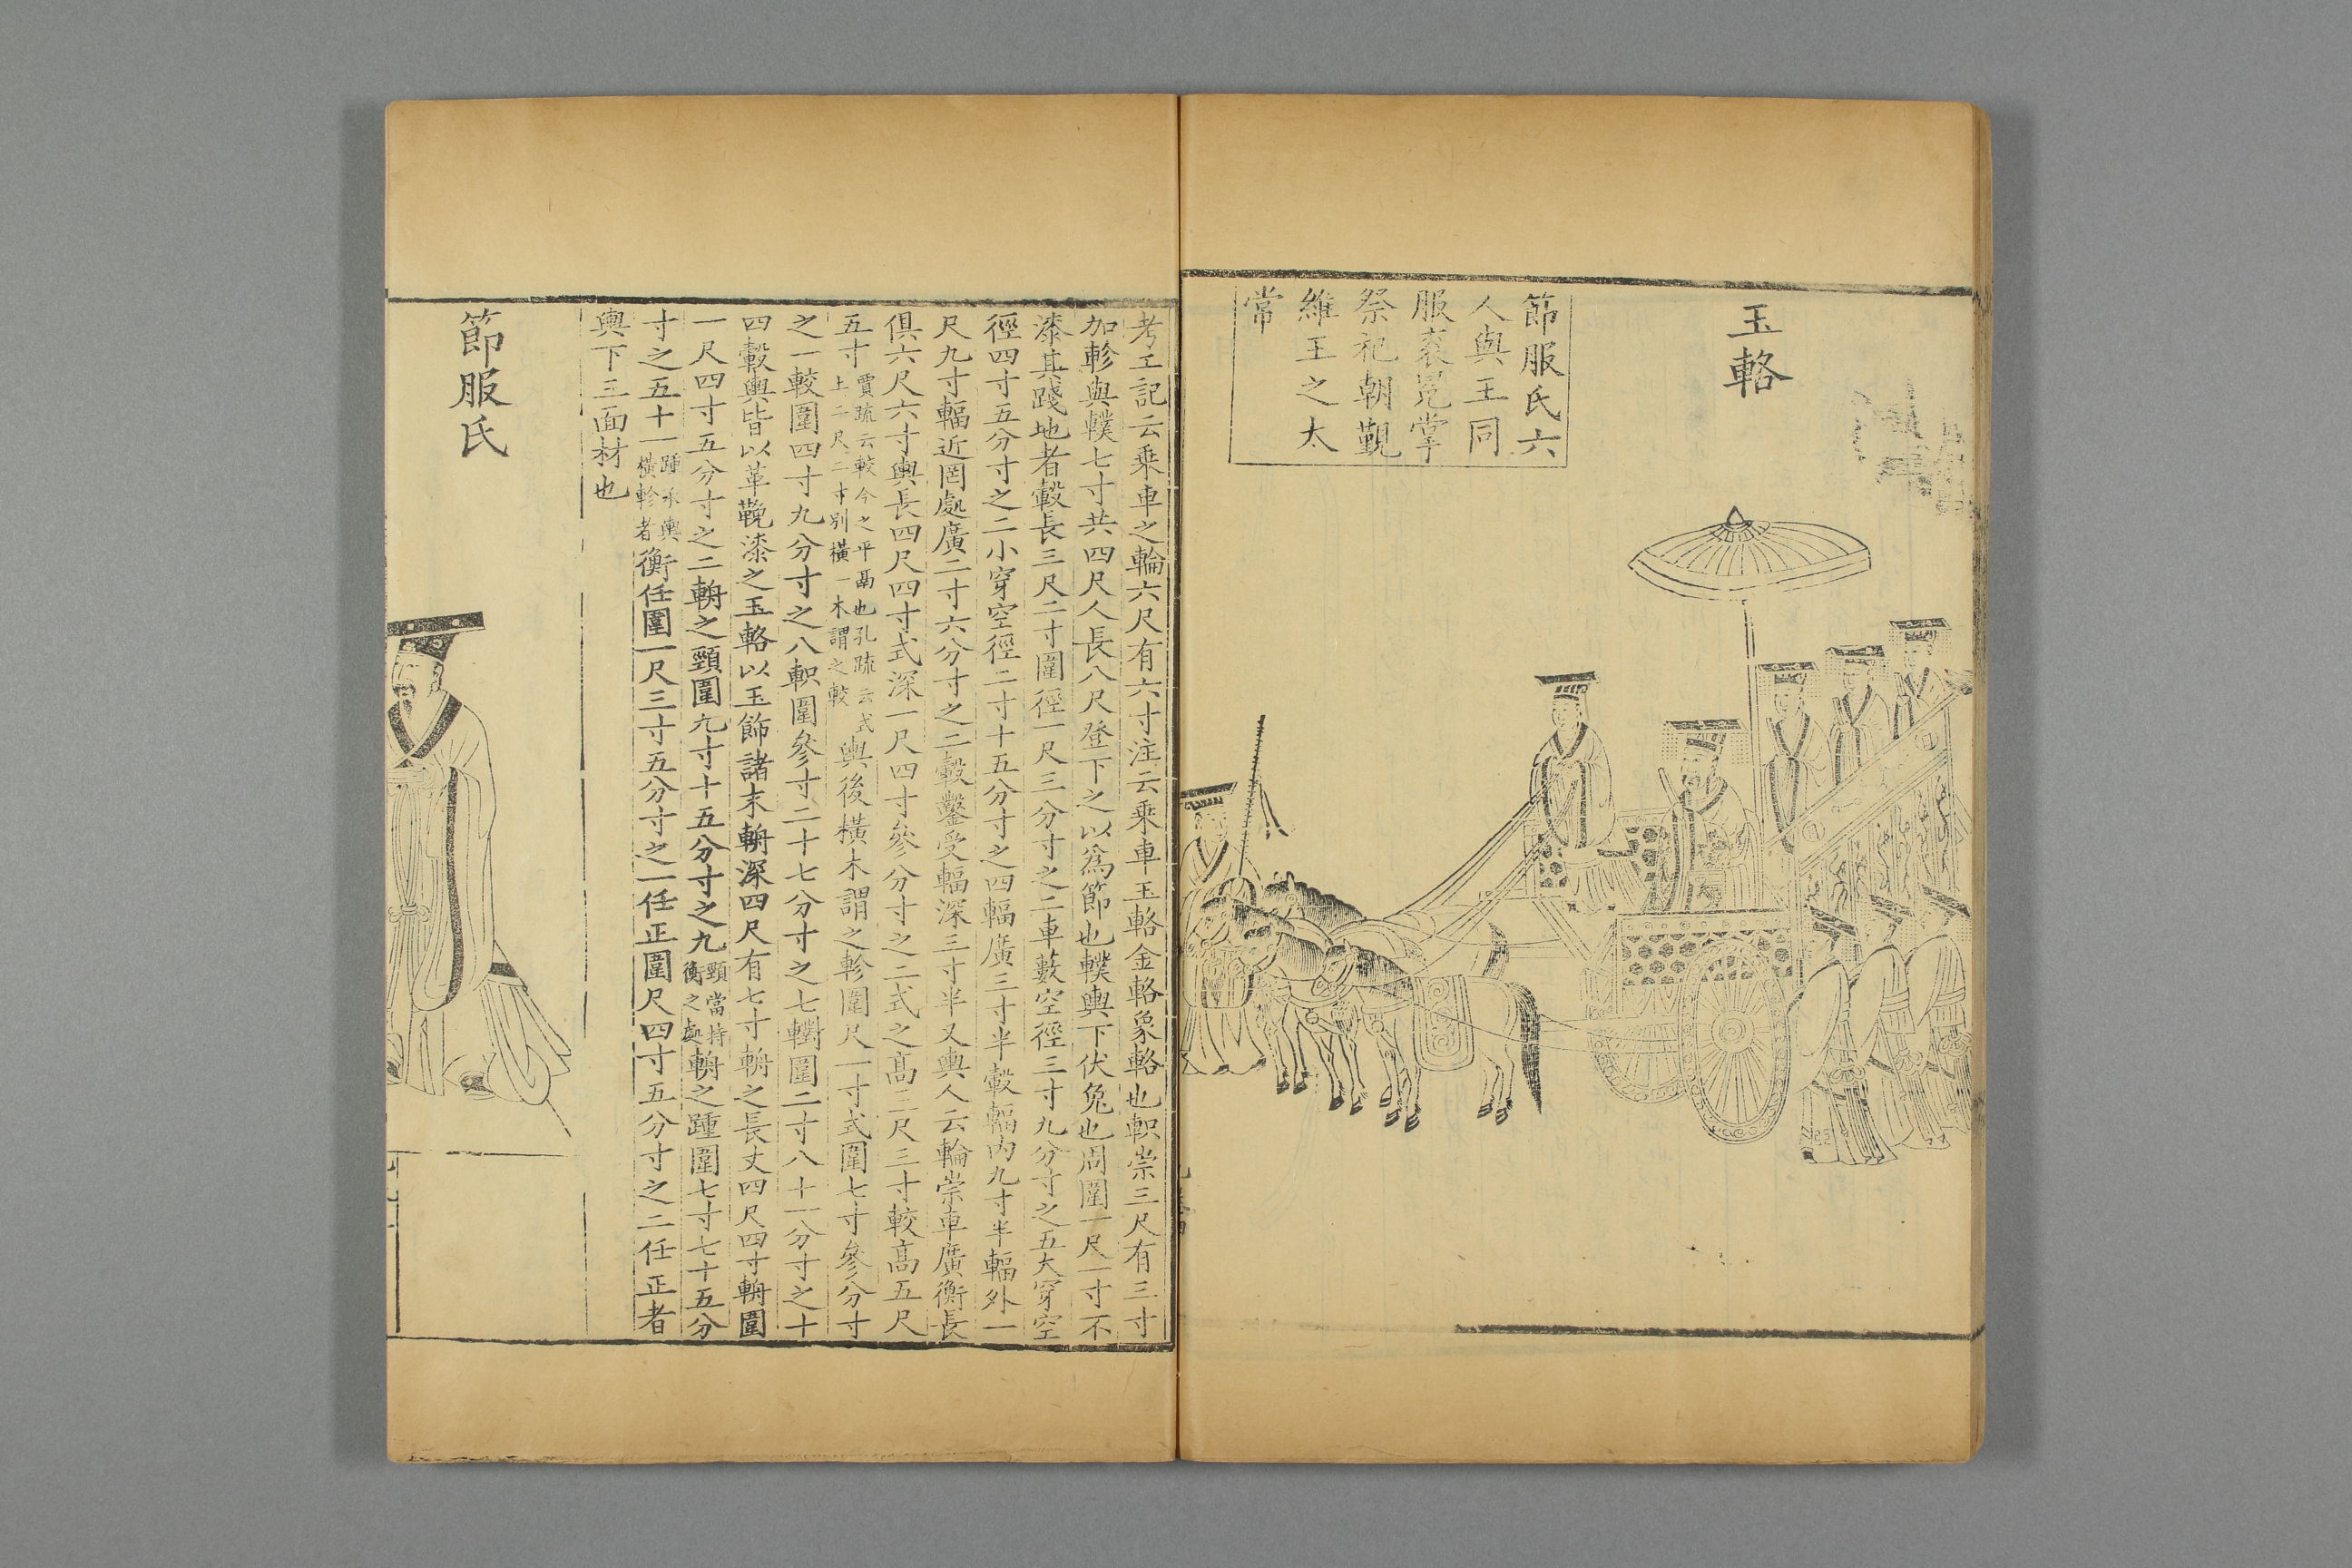 玉輅
節服氏六
人與王同
服衮冕掌
祭祀朝覲
維王之太
常
考工記云乘車之輪六尺有六寸注云乘車玉輅金輅象輅也軹崇三尺有三寸
加軫與轐七寸共四尺人長八尺登下之以爲節也轐輿下伏兔也周圍一尺一寸不
漆其踐地者轂長三尺二寸圍徑一尺三分寸之二車藪空徑三寸九分寸之五大穿空
徑四寸五分寸之二小穿空徑二寸十五分寸之四輻廣三寸半轂輻內九寸半輻外一
尺九寸輻近罔處廣二寸六分寸之二轂鑿受輻深三寸半又輿人云輪崇車廣衡長
俱六尺六寸輿長四尺四寸式深一尺四寸參分寸之二式之高三尺三寸較高五尺
五寸賈疏云較今之平鬲也孔疏云式上二尺二寸別橫一木謂之較輿後橫木謂之軫圍尺一寸式圍七寸參分寸
之一較圍四寸九分寸之八軹圍參寸二十七分寸之七轛圍二寸八十一分寸之十
四轂輿皆以革鞔漆之玉輅以玉飾諸末輈深四尺有七寸輈之長丈四尺四寸輈圍
一尺四寸五分寸之二輈之頸圍九寸十五分寸之九頸當持衡之處輈之踵圍七寸七十五分
寸之五十一踵承輿橫軫者衡任圍一尺三寸五分寸之一任正圍尺四寸五分寸之二任正者
輿下三面材也
節服氏